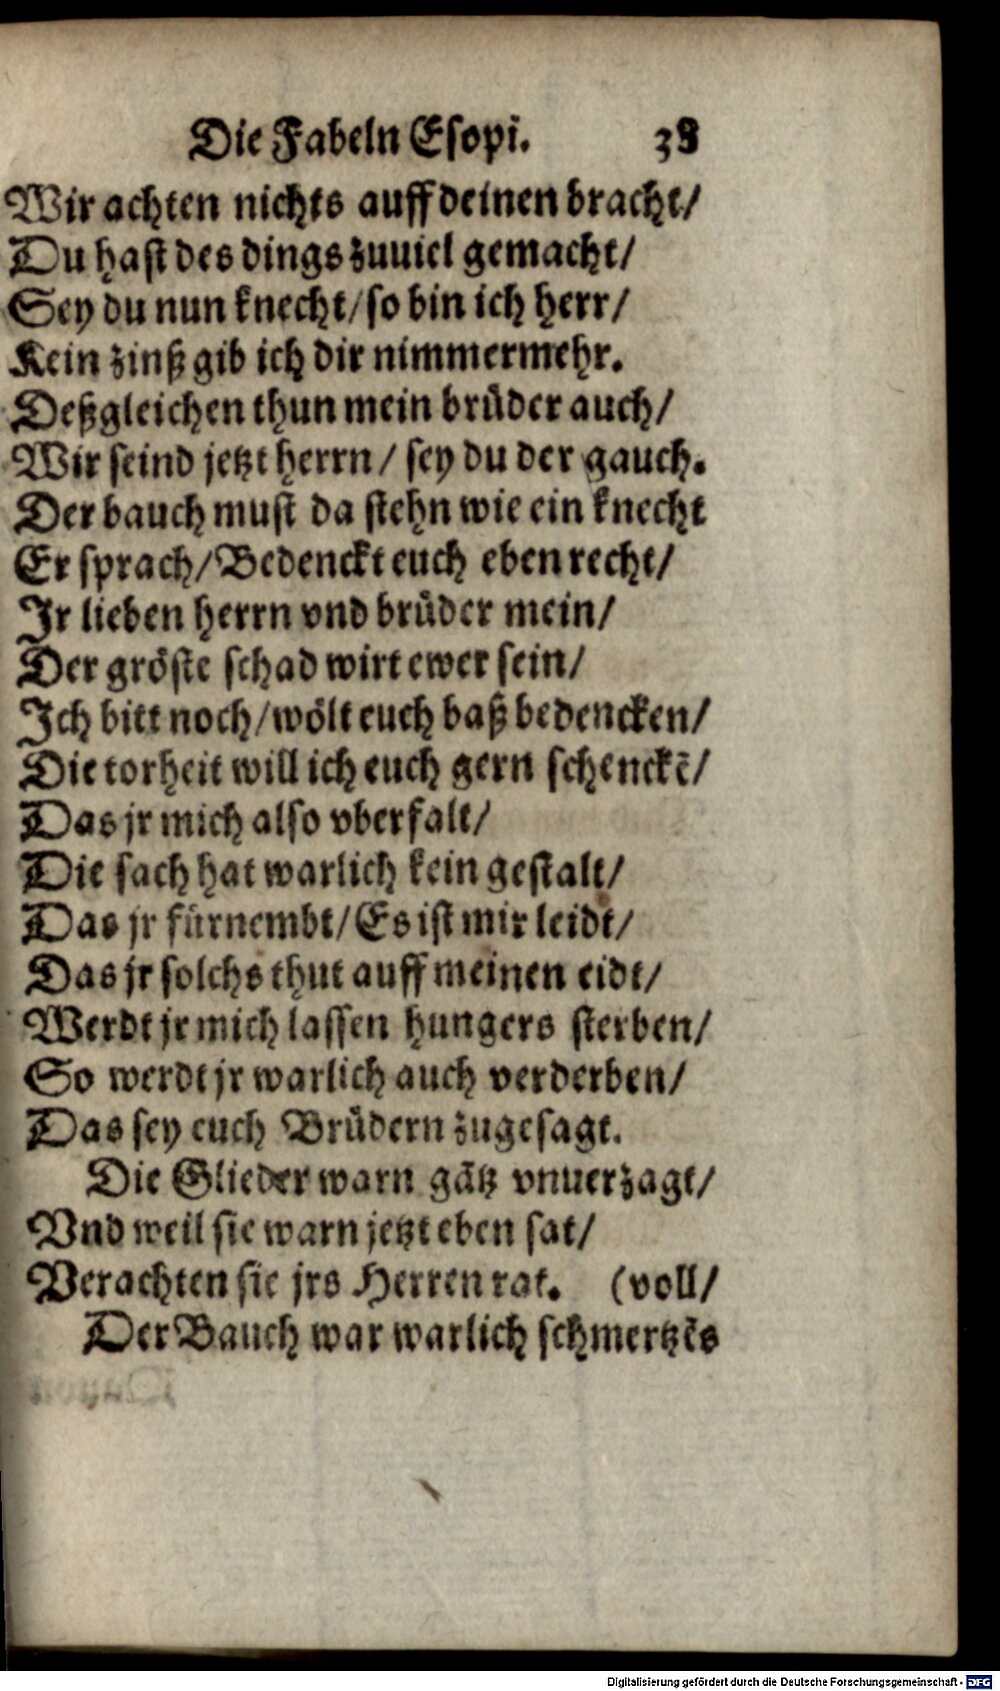 Die Fabeln Esopi. 38
Wir achten nichts auff deinen bracht/
Du hast des dings zuuiel gemacht/
Sey du nun knecht/so bin ich herr/
Kein zinß gib ich dir nimmermehr.
Deßgleichen thun mein brüder auch/
Wir seind jetzt herrn / sey du der gauch.
Der bauch must da stehn wie ein knecht
Er sprach/Bedenckt euch eben recht/
Ir lieben herrn vnd brüder mein/
Der gröste schad wirt ewer sein/
Ich bitt noch/wölt euch baß bedencken/
Die torheit will ich euch gern schenckē/
Das jr mich also vberfalt/
Die sach hat warlich kein gestalt/
Das jr fürnembt/Es ist mir leidt/
Das jr solchs thut auff meinen eidt/
Werdt jr mich lassen hungers sterben/
So werdt jr warlich auch verderben/
Das sey euch Brüdern zugesagt.
Die Glieder warn gātz vnuerzagt/
Vnd weil sie warn jetzt eben sat/
Verachten sie jrs Herren rat. (voll/
Der Bauch war warlich schmertzēs
Digitalisierung gefördert durch die Deutsche Forschungsgemeinschaft - DFG